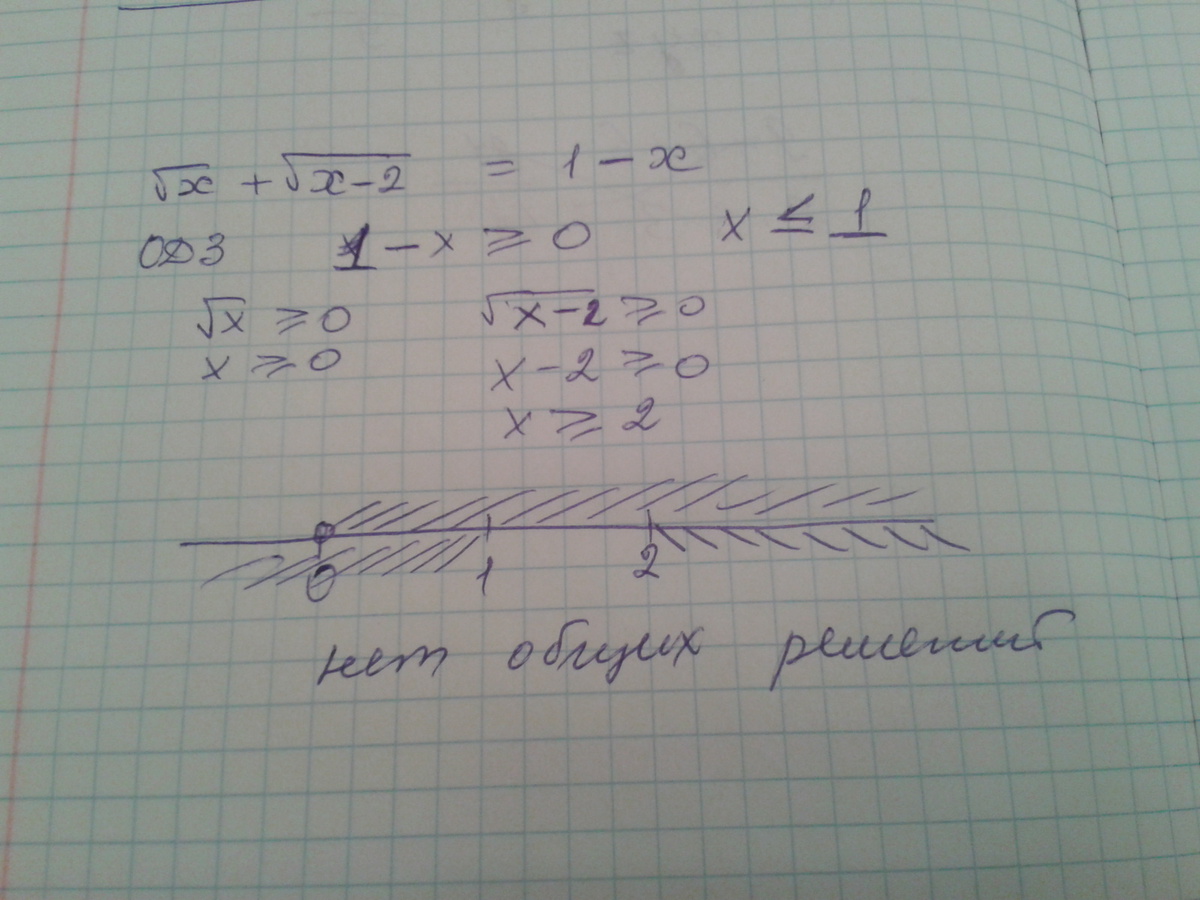 √x + √x-2 = 1 - x
ОДЗ 1 - x ≥ 0 x ≤ 1
√x ≥ 0 √x-2 ≥ 0
x ≥ 0 x - 2 ≥ 0
x ≥ 2
0 1 2
нет общих решений